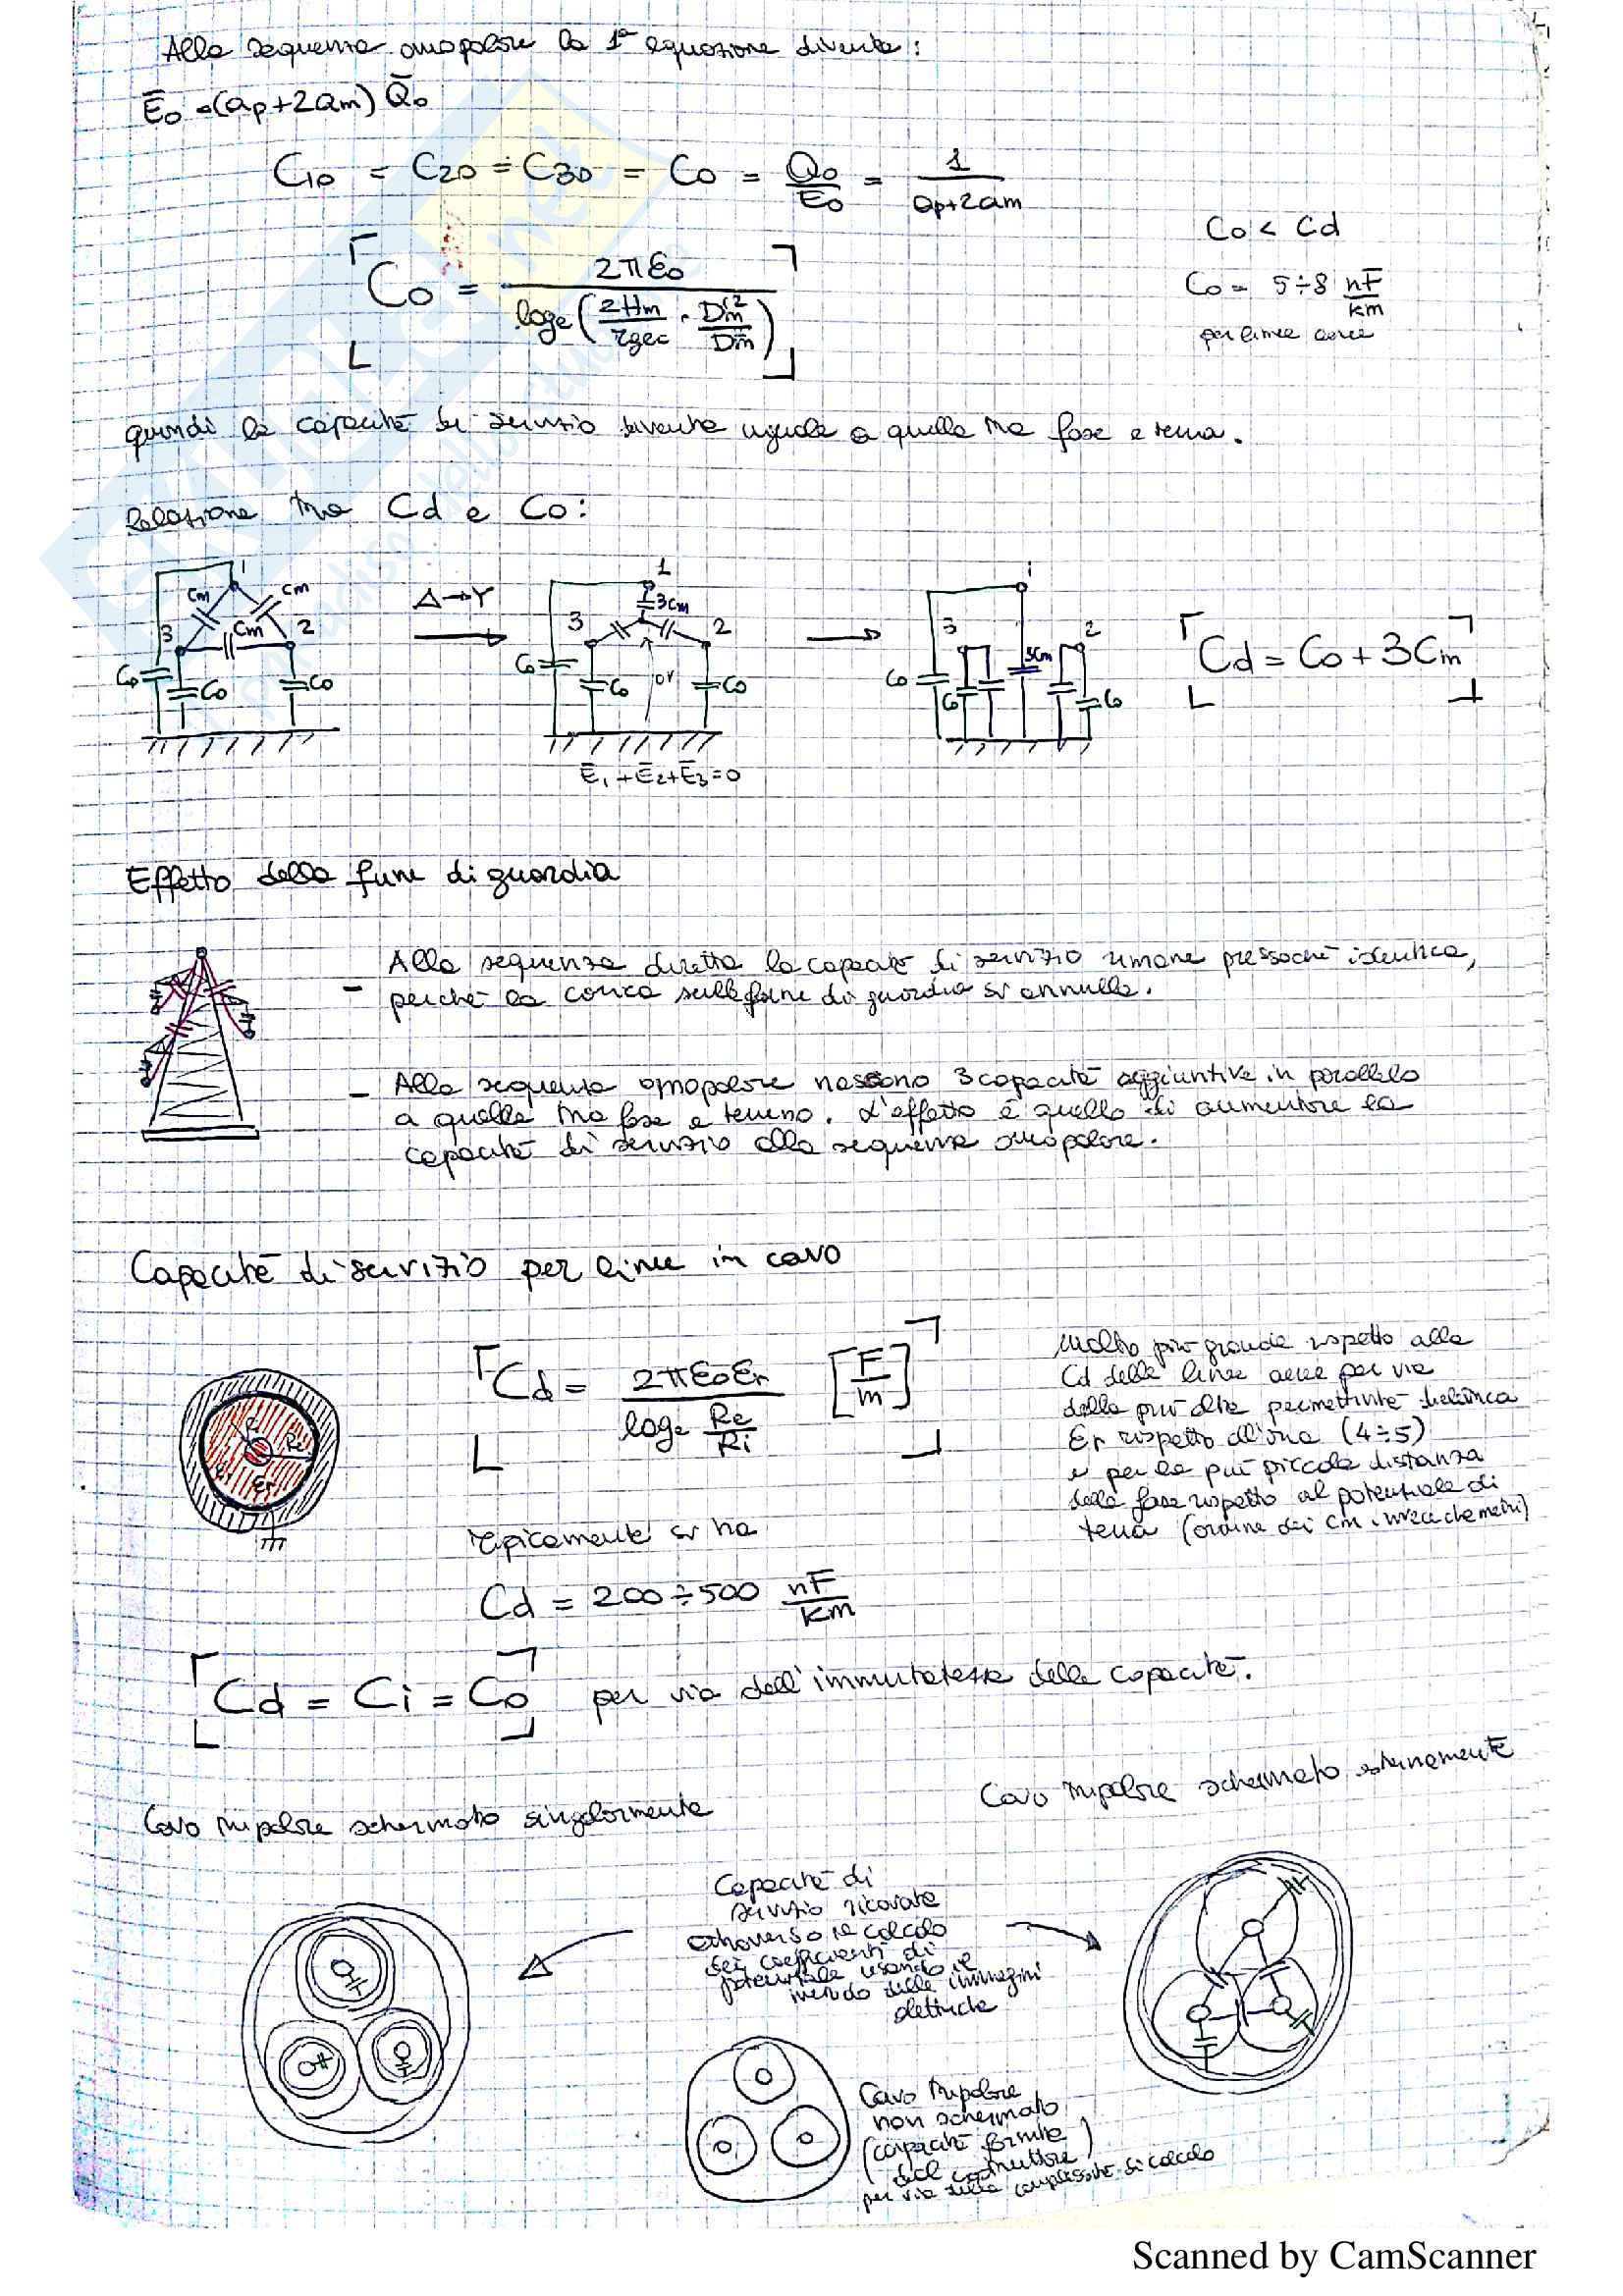 Alla sequenza omopolare la 1ª equazione diventa:
Ē₀ = (ap+2am) Q̄₀
C₁₀ = C₂₀ = C₃₀ = C₀ = Q₀/E₀ = 1/(ap+2am)
C₀ < Cd
C₀ = 2πε₀ / loge (2Hm/rgec · D'm²/Dm²)
C₀ = 5÷8 nF/km
per linee aeree
quindi la capacità di servizio diventa uguale a quella tra fase e terra.
Relazione tra Cd e C₀:
1 Cm Cm Cm 3 2 C₀ C₀ C₀
Δ→Y
1 3Cm 3 2 C₀ C₀ 0V C₀
1 3 2 3Cm C₀ C₀ C₀
Cd = C₀ + 3Cm
Ē₁ + Ē₂ + Ē₃ = 0
Effetto della fune di guardia
- Alla sequenza diretta la capacità di servizio rimane pressoché identica,
perché la carica sulla fune di guardia si annulla.
- Alla sequenza omopolare nascono 3 capacità aggiuntive in parallelo
a quelle tra fase e terreno. L'effetto è quello di aumentare la
capacità di servizio alla sequenza omopolare.
Capacità di servizio per linee in cavo
Ri Re εr
Cd = 2πε₀εr / loge Re/Ri [F/m]
Molto più grande rispetto alla
Cd delle linee aeree per via
della più alta permettività dielettrica
εr rispetto all'aria (4÷5)
e per la più piccola distanza
della fase rispetto al potenziale di
terra (ordine dei cm invece che metri)
Tipicamente si ha
Cd = 200÷500 nF/km
Cd = Ci = C₀ per via dell'immutatezza delle capacità.
Cavo tripolare schermato singolarmente
Cavo tripolare schermato esternamente
Capacità di
servizio ricavate
attraverso il calcolo
dei coefficienti di
potenziale usando il
metodo delle immagini
elettriche
Cavo tripolare
non schermato
(capacità fornita
dal costruttore)
per via della complessità di calcolo
Scanned by CamScanner